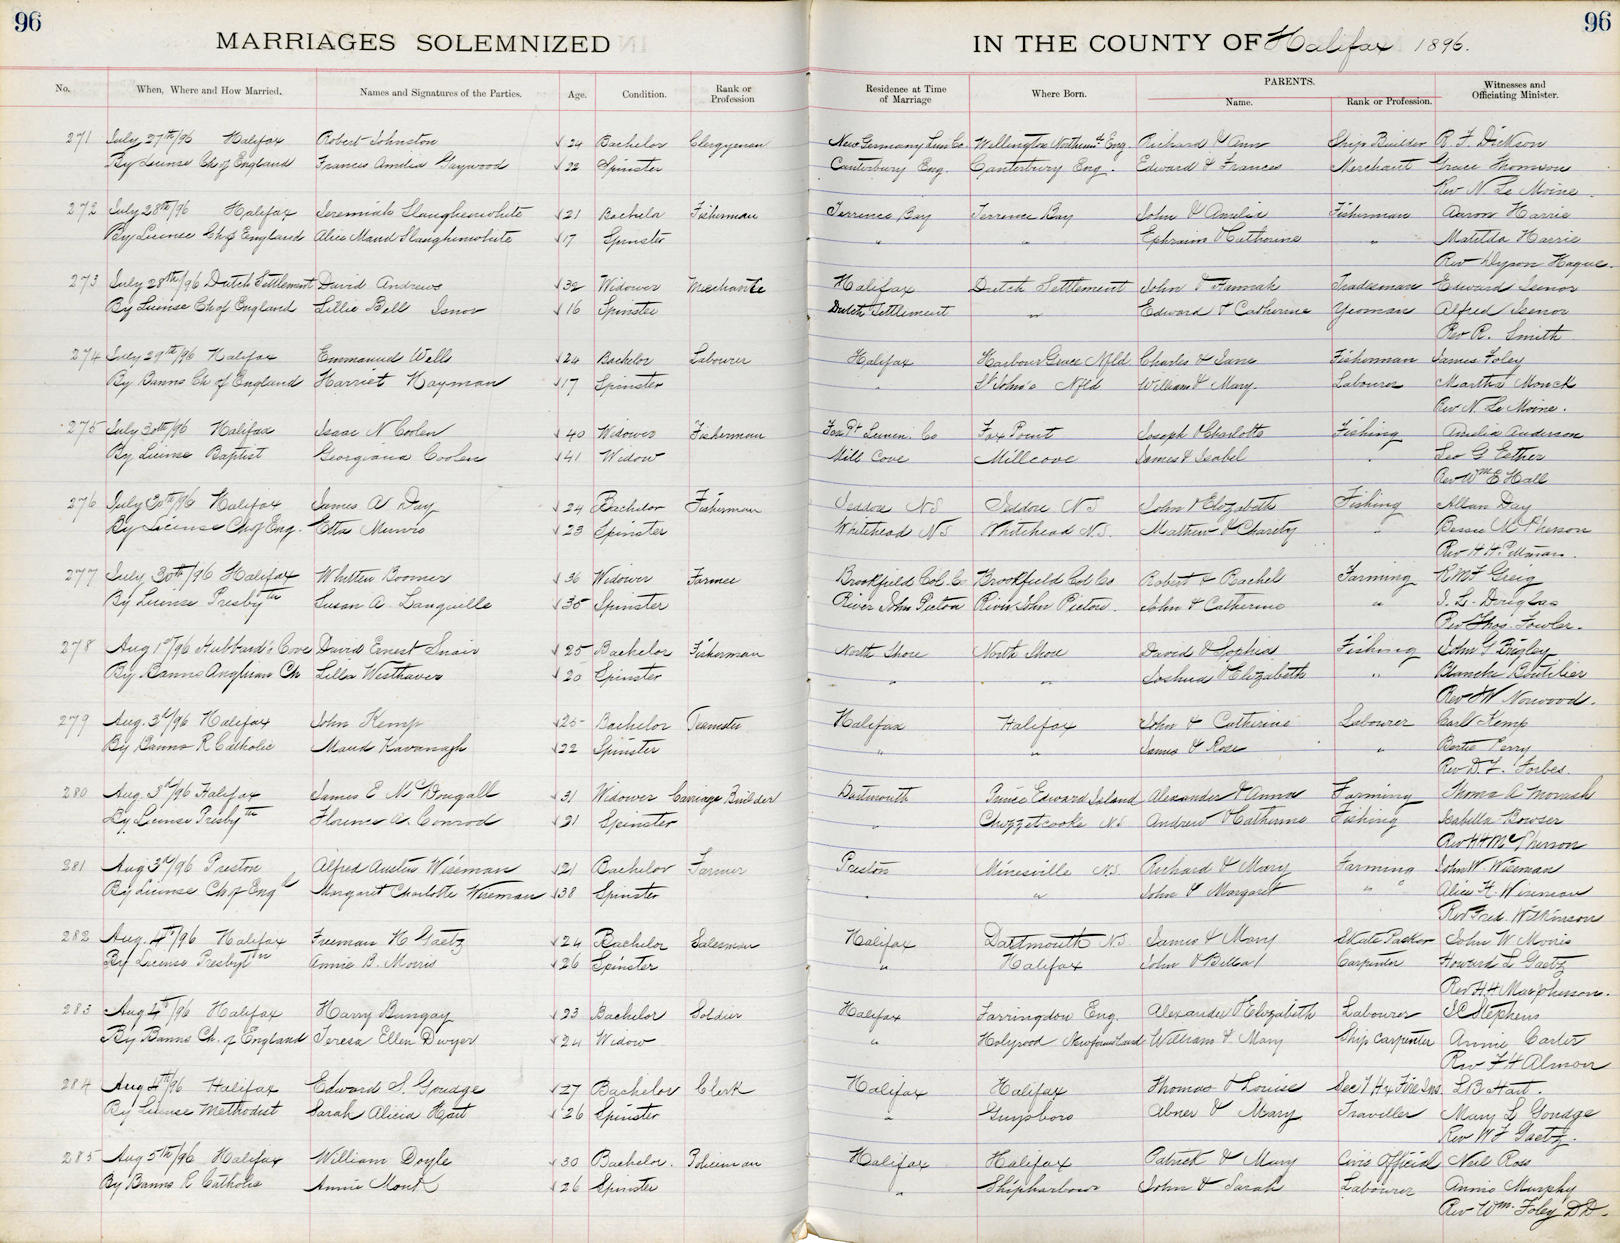 96
96
MARRIAGES SOLEMNIZED IN THE COUNTY OF Halifax 1896.
No. When, Where and How Married. Names and Signatures of the Parties. Age. Condition. Rank or Profession Residence at Time of Marriage Where Born. PARENTS. Name. Rank or Profession. Witnesses and Officiating Minister.
271 July 27th/96 Halifax Robert Johnston 24 Bachelor Clergyman New Germany Lun Co. Wellington Northum'd Eng. Richard & Ann Ship Builder R. F. Dickson
By License Ch of England Frances Amelia Gaywood 22 Spinster Canterbury Eng. Canterbury Eng. Edward & Frances Merchant Grace Thomson
Rev N Le Moine
272 July 28th/96 Halifax Jeremiah Slaughenwhite 21 Bachelor Fisherman Terrence Bay Terrence Bay John & Amelia Fisherman Aaron Harrie
By License Ch of England Alice Maud Slaughenwhite 17 Spinster " " Ephraim & Catherine " Matilda Harrie
Rev Dyson Hague.
273 July 28th/96 Dutch Settlement David Andrews 32 Widower Mechanic Halifax Dutch Settlement John & Hannah Tradesman Edward Isenor
By License Ch of England Lillie Bell Isnor 16 Spinster Dutch Settlement " Edward & Catherine Yeoman Alfred Isenor
Rev R. Smith
274 July 29th/96 Halifax Emmanuel Wells 24 Bachelor Labourer Halifax Harbour Grace Nfld. Charles & Jane Fisherman James Foley
By Banns Ch of England Harriet Hayman 17 Spinster " St John's Nfld William & Mary. Labourer Martha Monck
Rev N. Le Moine.
275 July 30th/96 Halifax Isaac N Coolen 40 Widower Fisherman Fox Pt Lunen. Co Fox Point Joseph & Charlotte Fishing Amelia Anderson
By License Baptist Georgiana Coolen 41 Widow Mill Cove Millcove James & Isabel " Leo G Esther
Rev Wm E Hall
276 July 30th/96 Halifax James A Day 24 Bachelor Fisherman Seddore NS Jeddore NS John & Elizabeth Fishing Allan Day
By License Ch of Eng. Etta Munro 23 Spinster Whitehead NS Whitehead N.S. Mathew & Charity " Bessie McPherson
Rev H H Pittman.
277 July 30th/96 Halifax Whitten Boomer 36 Widower Farmer Brookfield Col. Co Brookfield Col Co Robert & Rachel Farming R M F Greig
By License Presbytn Susan A. Langille 35 Spinster River John Pictou River John Pictou. John & Catherine " I. L. Douglas
Rev Thos. Fowler.
278 Aug 1st/96 Hubbard's Cove David Ernest Snair 25 Bachelor Fisherman North Shore North Shore David & Sophia Fishing John G Bigley
By Banns Anglican Ch Lilla Westhaver 20 Spinster " " Joshua & Elizabeth " Blanch Boutilier
Rev H W Norwood.
279 Aug. 3d/96 Halifax John Kemp 25 Bachelor Teamster Halifax Halifax John & Catherine Labourer Carl Kemp
By Banns R Catholic Maud Kavanagh 22 Spinster " " James & Rose " Bertie Perry
Rev D. F. Forbes.
280 Aug. 3d/96 Halifax James E McDougall 31 Widower Carriage Builder Dartmouth Prince Edward Island Alexander & Anna Farming Thomas A Morash
By License Presbytn Florence A. Conrod 21 Spinster " Chezzetcooke NS Andrew & Catherine Fishing Isabella Bowser
Rev H H McPherson
281 Aug 3d/96 Preston Alfred Austin Wiseman 21 Bachelor Farmer Preston Minesville NS Richard & Mary Farming John W Wiseman
By License Ch of Engl Margaret Charlotte Wiseman 38 Spinster " " John & Margaret " " Alice H. Wiseman
Rev Fred. Wilkinson
282 Aug. 4th/96 Halifax Freeman H Gaetz 24 Bachelor Salesman Halifax Dartmouth NS James & Mary Skate Packer John W Morris
By License Presbytn Annie B. Morris 26 Spinster " Halifax John & Bella Carpenter Howard L Gaetz
Rev H H Macpherson.
283 Aug 4th/96 Halifax Harry Bungay 23 Bachelor Soldier Halifax Farringdon Eng. Alexander & Elizabeth Labourer J C Stephens
By Banns Ch. of England Teresa Ellen Dwyer 24 Widow " Holyrood Newfoundland William & Mary Ship Carpenter Annie Carter
Rev F H Almon
284 Aug 4th/96 Halifax Edward S. Goudge 27 Bachelor Clerk Halifax Halifax Thomas & Louise Sec'y Hx Fire Ins. L B Hart.
By License Methodist Sarah Alicia Hart 26 Spinster " Guysboro Abner & Mary Traveller Mary L Goudge
Rev W F Gaetz.
285 Aug 5th/96 Halifax William Doyle 30 Bachelor. Policeman Halifax Halifax Patrick & Mary Civic Official Neil Ross
By Banns R Catholic Annie Monk 26 Spinster " Shipharbour John & Sarah Labourer Annie Murphy
Rev Wm. Foley D.D.